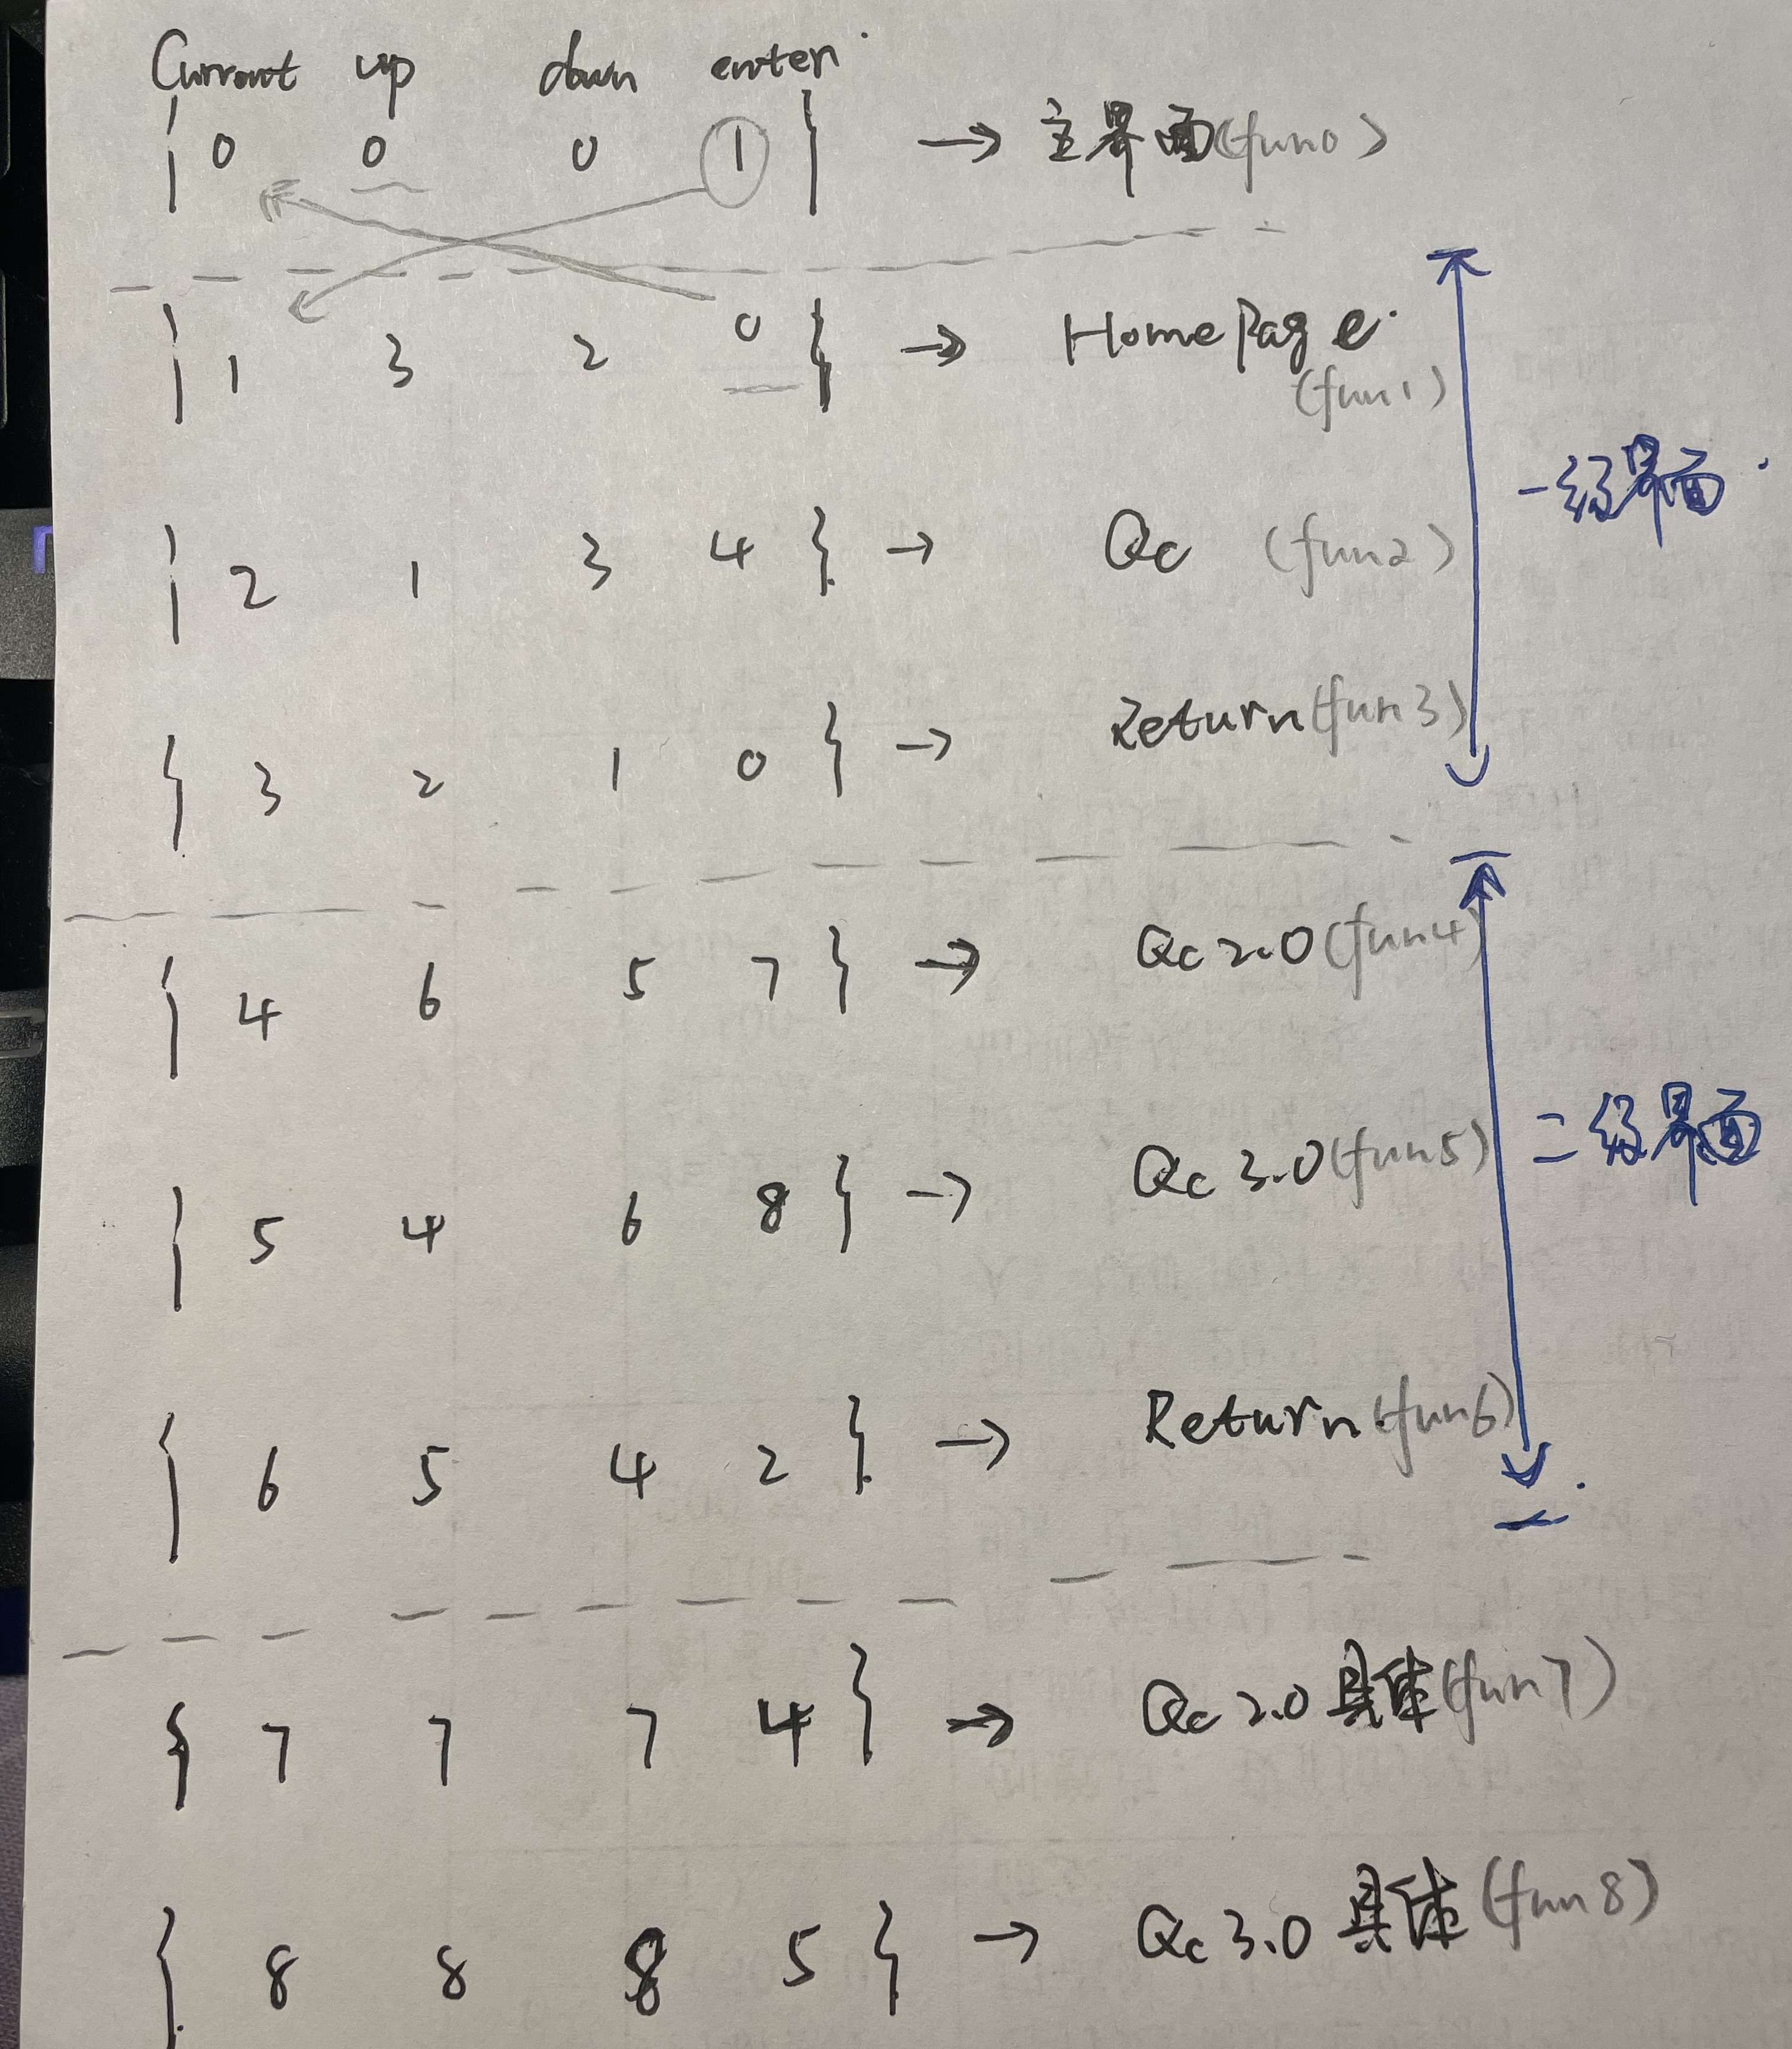 Current up down enter
{ 0 0 0 1 } → 主界面(fun0)
{ 1 3 2 0 } → HomePage
(fun1)
一级界面
{ 2 1 3 4 } → Qc (fun2)
{ 3 2 1 0 } → Return(fun3)
{ 4 6 5 7 } → Qc 2.0(fun4)
二级界面
{ 5 4 6 8 } → Qc 3.0(fun5)
{ 6 5 4 2 } → Return(fun6)
{ 7 7 7 4 } → Qc 2.0 具体(fun7)
{ 8 8 8 5 } → Qc 3.0 具体(fun8)